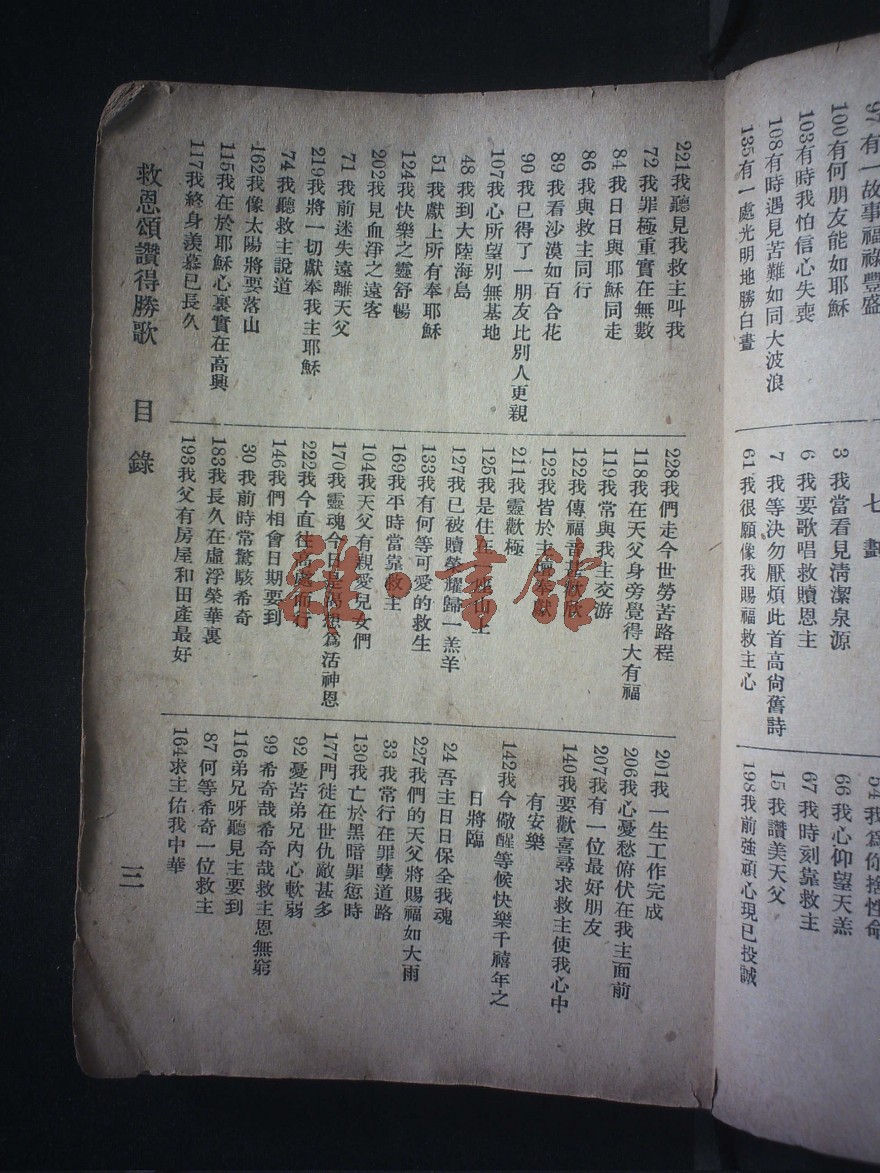 97有一故事福祿豐盛
100有何朋友能如耶穌
103有時我怕信心失喪
108有時遇見苦難如同大波浪
135有一處光明地勝白晝
七劃
3 我當看見淸潔泉源
6 我要歌唱救贖恩主
7 我等決勿厭煩此首高尙舊詩
61我很願像我賜福救主心
54我爲你捨性命
66我心仰望天羔
67我時刻靠救主
15我讚美天父
198我前強頑心現已投誠
221我聽見我救主叫我
72我罪極重實在無數
84我日日與耶穌同走
86我與救主同行
89我看沙漠如百合花
90我已得了一朋友比別人更親
107我心所望別無基地
48我到大陸海島
51我獻上所有奉耶穌
124我快樂之靈舒暢
202我見血淨之遠客
71我前迷失遠離天父
219我將一切獻奉我主耶穌
74我聽救主說道
162我像太陽將要落山
115我在於耶穌心裏實在高興
117我終身羨慕已長久
228我們走今世勞苦路程
118我在天父身旁覺得大有福
119我常與我主交游
122我傳福音甚歡欣
123我皆於主壇奉獻
211我靈歡極
125我是住在一座山上
127我已被贖榮耀歸一羔羊
133我有何等可愛的救生
169我平時當靠救主
104我天父有親愛兒女們
170我靈魂今日是渴想爲活神恩
222我今直往高處而行
146我們相會日期要到
30我前時常驚駭希奇
183我長久在虛浮榮華裏
193我父有房屋和田產最好
201我一生工作完成
206我心憂愁俯伏在我主面前
207我有一位最好朋友
140我要歡喜尋求救主使我心中
有安樂
142我今儆醒等候快樂千禧年之
日將臨
24吾主日日保全我魂
227我們的天父將賜福如大雨
33我常行在罪孽道路
130我亡於黑暗罪愆時
177門徒在世仇敵甚多
92憂苦弟兄內心軟弱
99希奇哉希奇哉救主恩無窮
116弟兄呀聽見主要到
87何等希奇一位救主
164求主佑我中華
救恩頌讚得勝歌 目錄
三
雜·書館